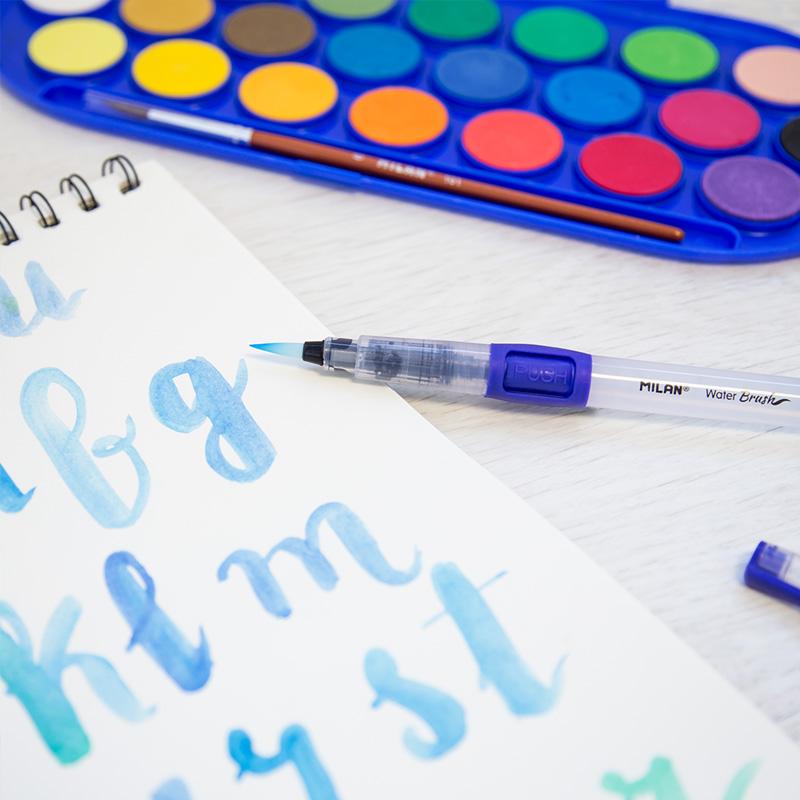 MILAN 121
PUSH
MILAN® Water Brush
u
b g
k l m
r s t